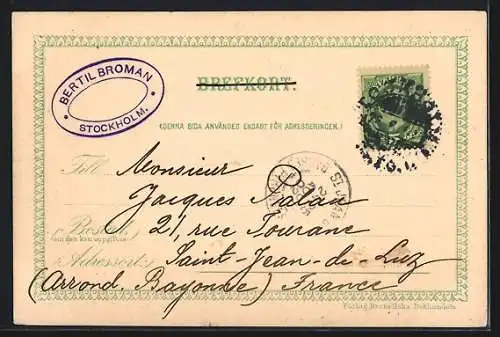 BREFKORT.
BERTIL BROMAN
STOCKHOLM.
(DENNA SIDA ANVÄNDES ENDAST FÖR ADRESSERINGEN.)
Till Monsieur
Jacques Nalau
Bostad 21, rue Tourane
(om den kan uppgifvas)
Adressort: Saint-Jean-de-Luz
(Arrond. Bayonne) France